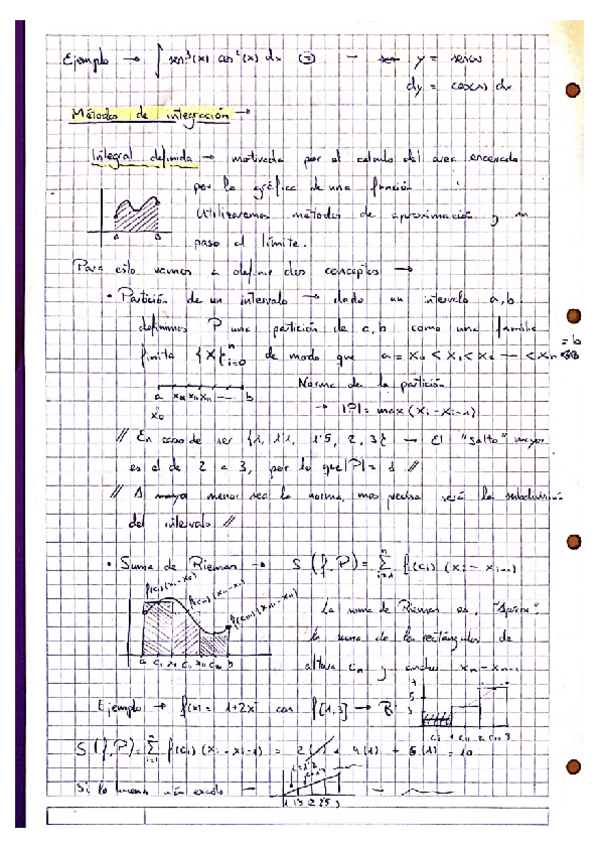 Ejemplo → ∫ sen³(x) cos²(x) dx → y = sen(x)
dy = cos(x) dx
Métodos de integración →
Integral definida → motivada por el calculo del area encerrada
por la gráfica de una función
Utilizaremos métodos de aproximación y un
paso al límite.
Para esto vamos a definir dos conceptos →
• Partición de un intervalo → dado un intervalo a, b
definimos P una partición de a, b como una familia
finita {X}ⁿᵢ₌₀ de modo que a = x₀ < x₁ < x₂ — < xₙ = b
Norma de la partición
a b
x₀
→ |P| = max (xᵢ - xᵢ₋₁)
// En caso de ser {1, 1'1, 1'5, 2, 3} → El "salto" mayor
es el de 2 a 3, por lo que |P| = 1 //
// A menor sea la norma, mas precisa será la subdivisión
del intervalo //
• Suma de Rieman → S(f, P) = Σⁿᵢ₌₁ f(cᵢ) (xᵢ - xᵢ₋₁)
La suma de Rieman es
la suma de los rectángulos de
altura cₙ y ancho xₙ - xₙ₋₁
Ejemplo → f(x) = 1+2x con f[1,3] → R
S(f, P) = Σⁿᵢ₌₁ f(cᵢ) (xᵢ - xᵢ₋₁) = + 4(1) + 6(1) = 10
Si lo